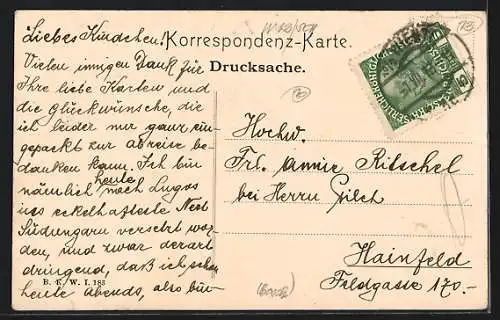 Liebes Kindchen!
Korrespondenz-Karte.
Drucksache.
Vielen innigen Dank für
Ihre liebe Karten und
die Glückwünsche, die
ich leider nur ganz ein-
gepackt zur Abreise be-
danken kann. Ich bin
nämlich heute nach Lugos
ins ekelhafteste Nest
Südungarn versetzt wor-
den, und zwar derart
dringend, daß ich schon
heute Abends, also bin-
B. K. W. I. 183
Hochw.
Frl. Annie Ritschel
bei Herrn Gilch
Hainfeld
Feldgasse 170.-